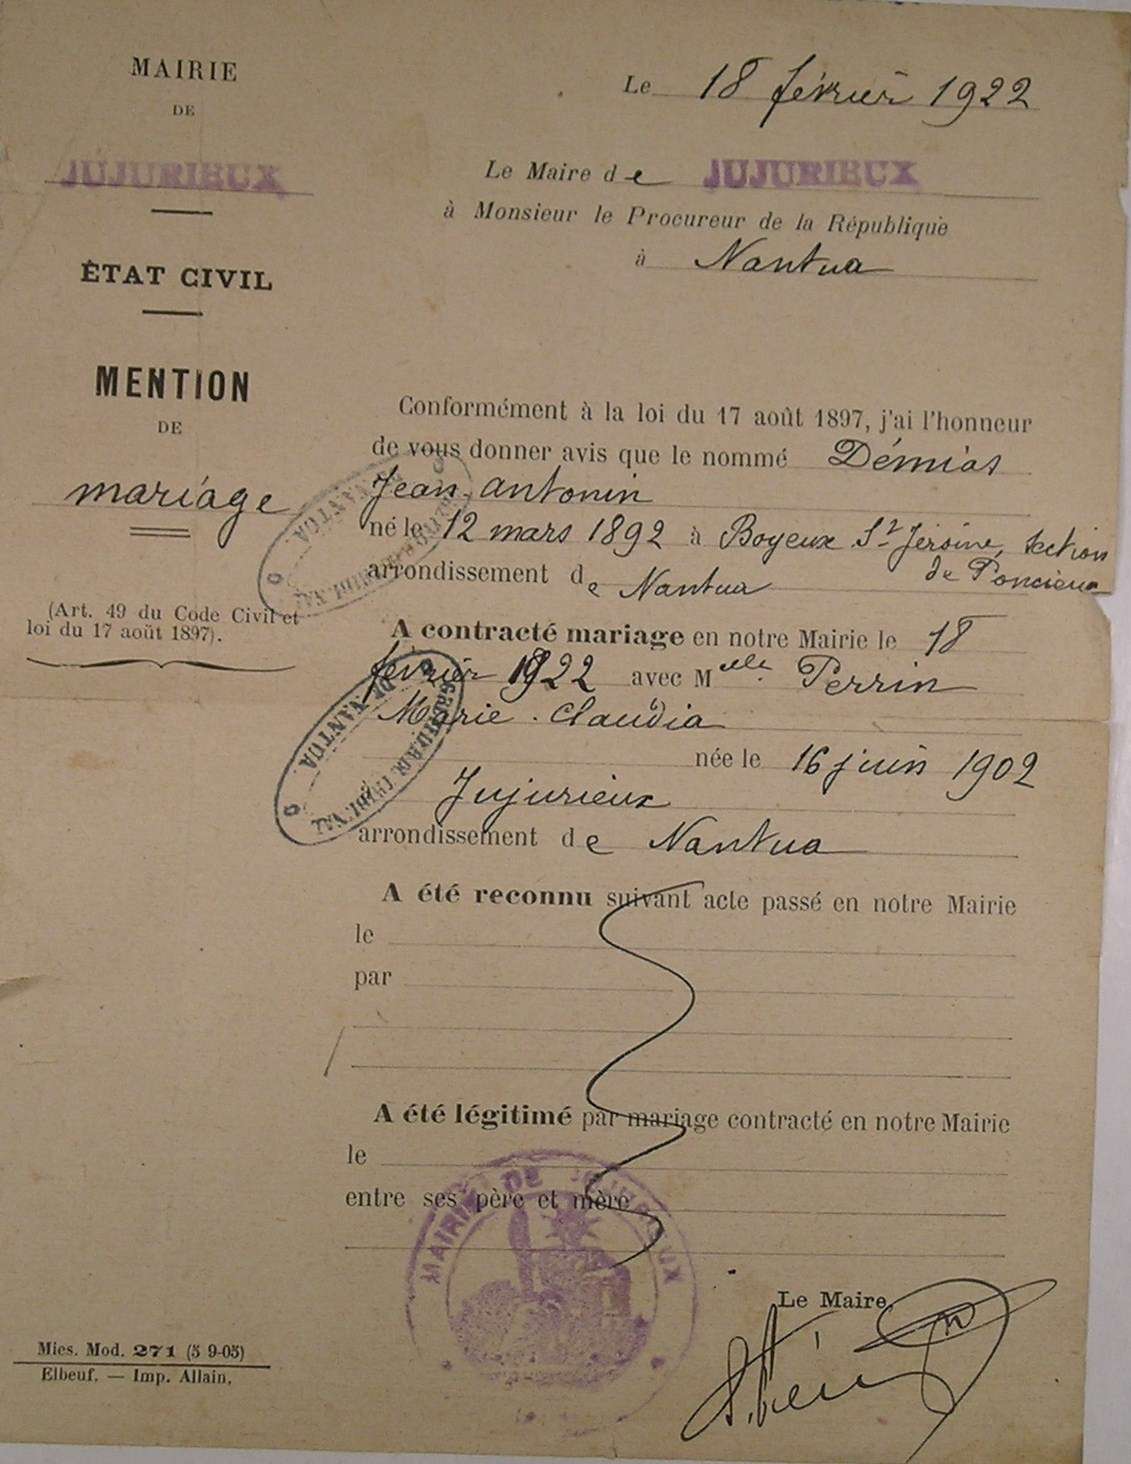 MAIRIE
DE
JUJURIEUX
ÉTAT CIVIL
MENTION
DE
mariage
(Art. 49 du Code Civil et
loi du 17 août 1897).
Le 18 février 1922
Le Maire de JUJURIEUX
à Monsieur le Procureur de la République
à Nantua
Conformément à la loi du 17 août 1897, j'ai l'honneur
de vous donner avis que le nommé Démias
Jean, antonin
né le 12 mars 1892 à Boyeux St Jérôme, section
de Poncieux
arrondissement de Nantua
A contracté mariage en notre Mairie le 18
février 1922 avec Melle Perrin
Marie. Claudia
née le 16 juin 1902
Jujurieux
arrondissement de Nantua
A été reconnu suivant acte passé en notre Mairie
le
par
A été légitimé par mariage contracté en notre Mairie
le
entre ses père et mère
MAIRIE DE JUJURIEUX
Le Maire,
Mies. Mod. 271 (5 9-05)
Elbeuf. — Imp. Allain.